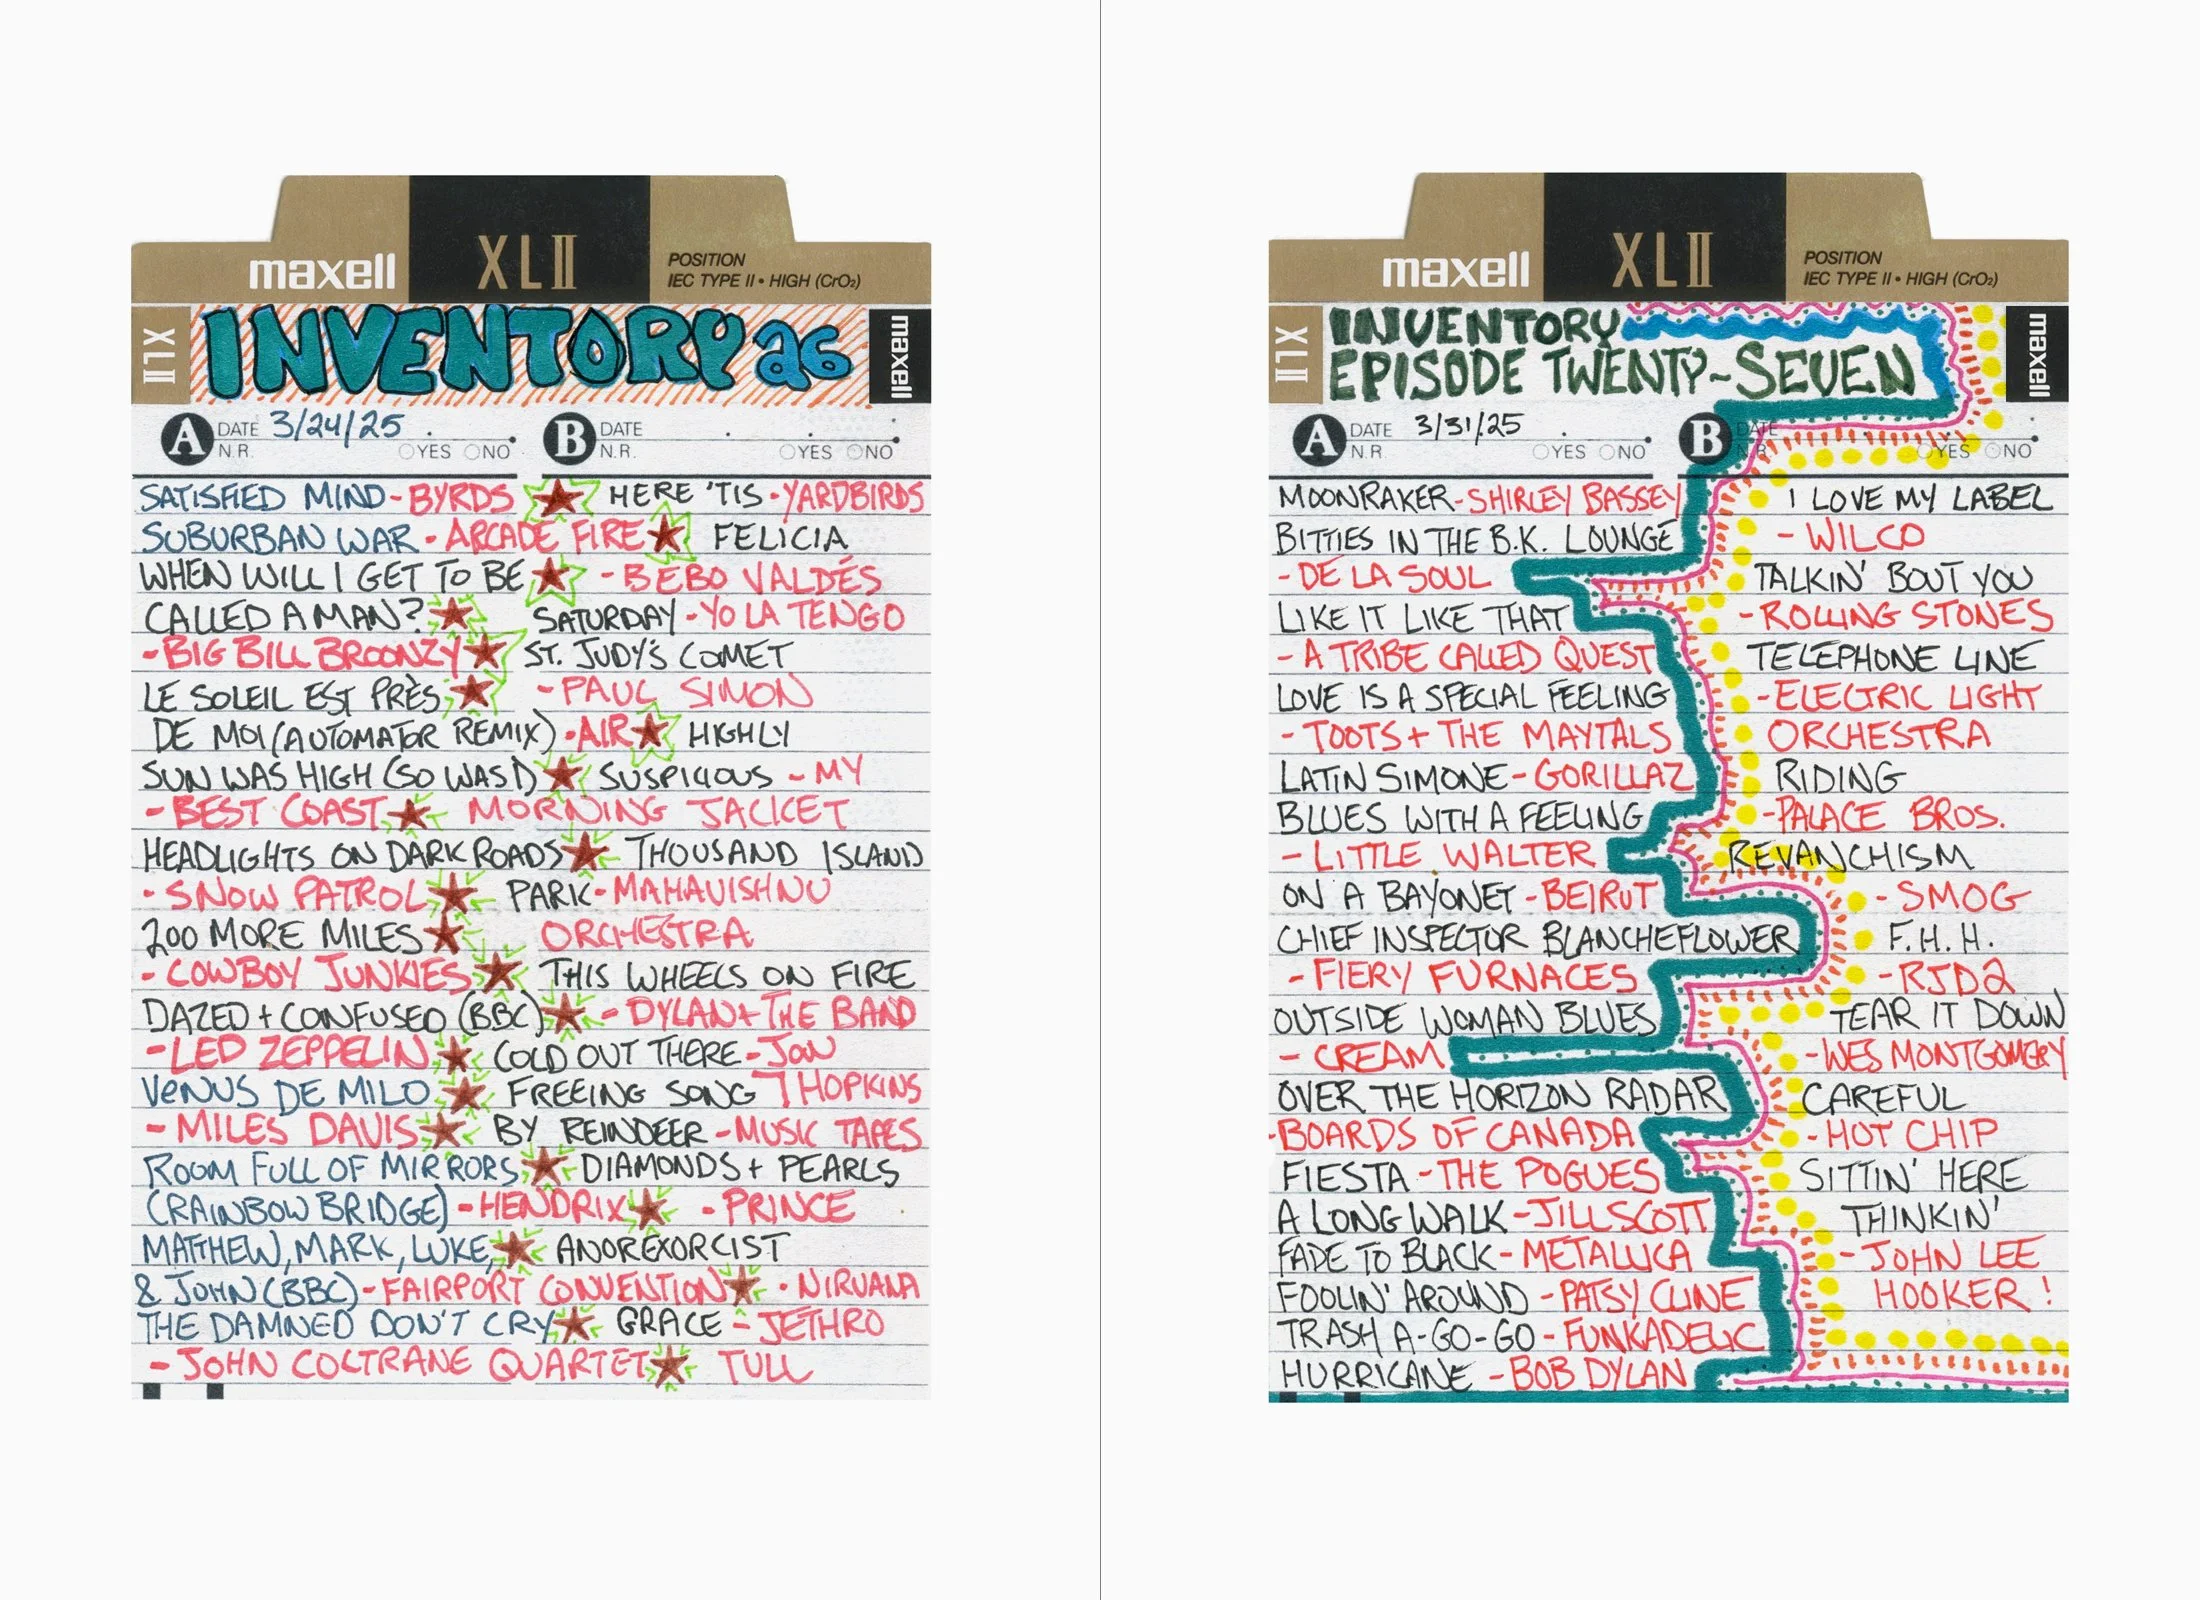 maxell
XLII
POSITION
IEC TYPE II • HIGH (CrO₂)
XLII
INVENTORY 26
maxell
A DATE 3/24/25
N.R. YES NO
B DATE
N.R. YES NO
SATISFIED MIND - BYRDS
SUBURBAN WAR - ARCADE FIRE
WHEN WILL I GET TO BE
CALLED A MAN?
- BIG BILL BROONZY
LE SOLEIL EST PRÈS
DE MOI (AUTOMATOR REMIX) - AIR
SUN WAS HIGH (SO WAS I)
- BEST COAST
HEADLIGHTS ON DARK ROADS
- SNOW PATROL
200 MORE MILES
- COWBOY JUNKIES
DAZED + CONFUSED (BBC)
- LED ZEPPELIN
VENUS DE MILO
- MILES DAVIS
ROOM FULL OF MIRRORS
(RAINBOW BRIDGE) - HENDRIX
MATTHEW, MARK, LUKE,
& JOHN (BBC) - FAIRPORT CONVENTION
THE DAMNED DON'T CRY
- JOHN COLTRANE QUARTET
HERE 'TIS - YARDBIRDS
FELICIA
- BEBO VALDÉS
SATURDAY - YO LA TENGO
ST. JUDY'S COMET
- PAUL SIMON
HIGHLY
SUSPICIOUS - MY
MORNING JACKET
THOUSAND ISLAND
PARK - MAHAVISHNU
ORCHESTRA
THIS WHEELS ON FIRE
- DYLAN + THE BAND
COLD OUT THERE - JON
HOPKINS
FREEING SONG
BY REINDEER - MUSIC TAPES
DIAMONDS + PEARLS
- PRINCE
ANOREXORCIST
- NIRVANA
GRACE - JETHRO
TULL
maxell
XLII
POSITION
IEC TYPE II • HIGH (CrO₂)
XLII
INVENTORY
EPISODE TWENTY-SEVEN
maxell
A DATE 3/31/25
N.R. YES NO
B DATE
N.R. YES NO
MOONRAKER - SHIRLEY BASSEY
BITTIES IN THE B.K. LOUNGE
- DE LA SOUL
LIKE IT LIKE THAT
- A TRIBE CALLED QUEST
LOVE IS A SPECIAL FEELING
- TOOTS + THE MAYTALS
LATIN SIMONE - GORILLAZ
BLUES WITH A FEELING
- LITTLE WALTER
ON A BAYONET - BEIRUT
CHIEF INSPECTOR BLANCHEFLOWER
- FIERY FURNACES
OUTSIDE WOMAN BLUES
- CREAM
OVER THE HORIZON RADAR
- BOARDS OF CANADA
FIESTA - THE POGUES
A LONG WALK - JILL SCOTT
FADE TO BLACK - METALLICA
FOOLIN' AROUND - PATSY CLINE
TRASH A-GO-GO - FUNKADELIC
HURRICANE - BOB DYLAN
I LOVE MY LABEL
- WILCO
TALKIN' BOUT YOU
- ROLLING STONES
TELEPHONE LINE
- ELECTRIC LIGHT
ORCHESTRA
RIDING
- PALACE BROS.
REVANCHISM
- SMOG
F.H.H.
- RJD2
TEAR IT DOWN
- WES MONTGOMERY
CAREFUL
- HOT CHIP
SITTIN' HERE
THINKIN'
- JOHN LEE
HOOKER!